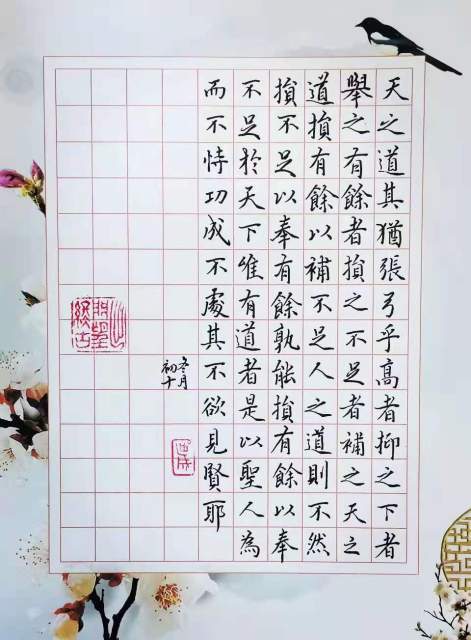 天之道其猶張弓乎高者抑之下者
舉之有餘者損之不足者補之天之
道損有餘以補不足人之道則不然
損不足以奉有餘孰能損有餘以奉
不足於天下唯有道者是以聖人為
而不恃功成不處其不欲見賢耶
冬月
初十